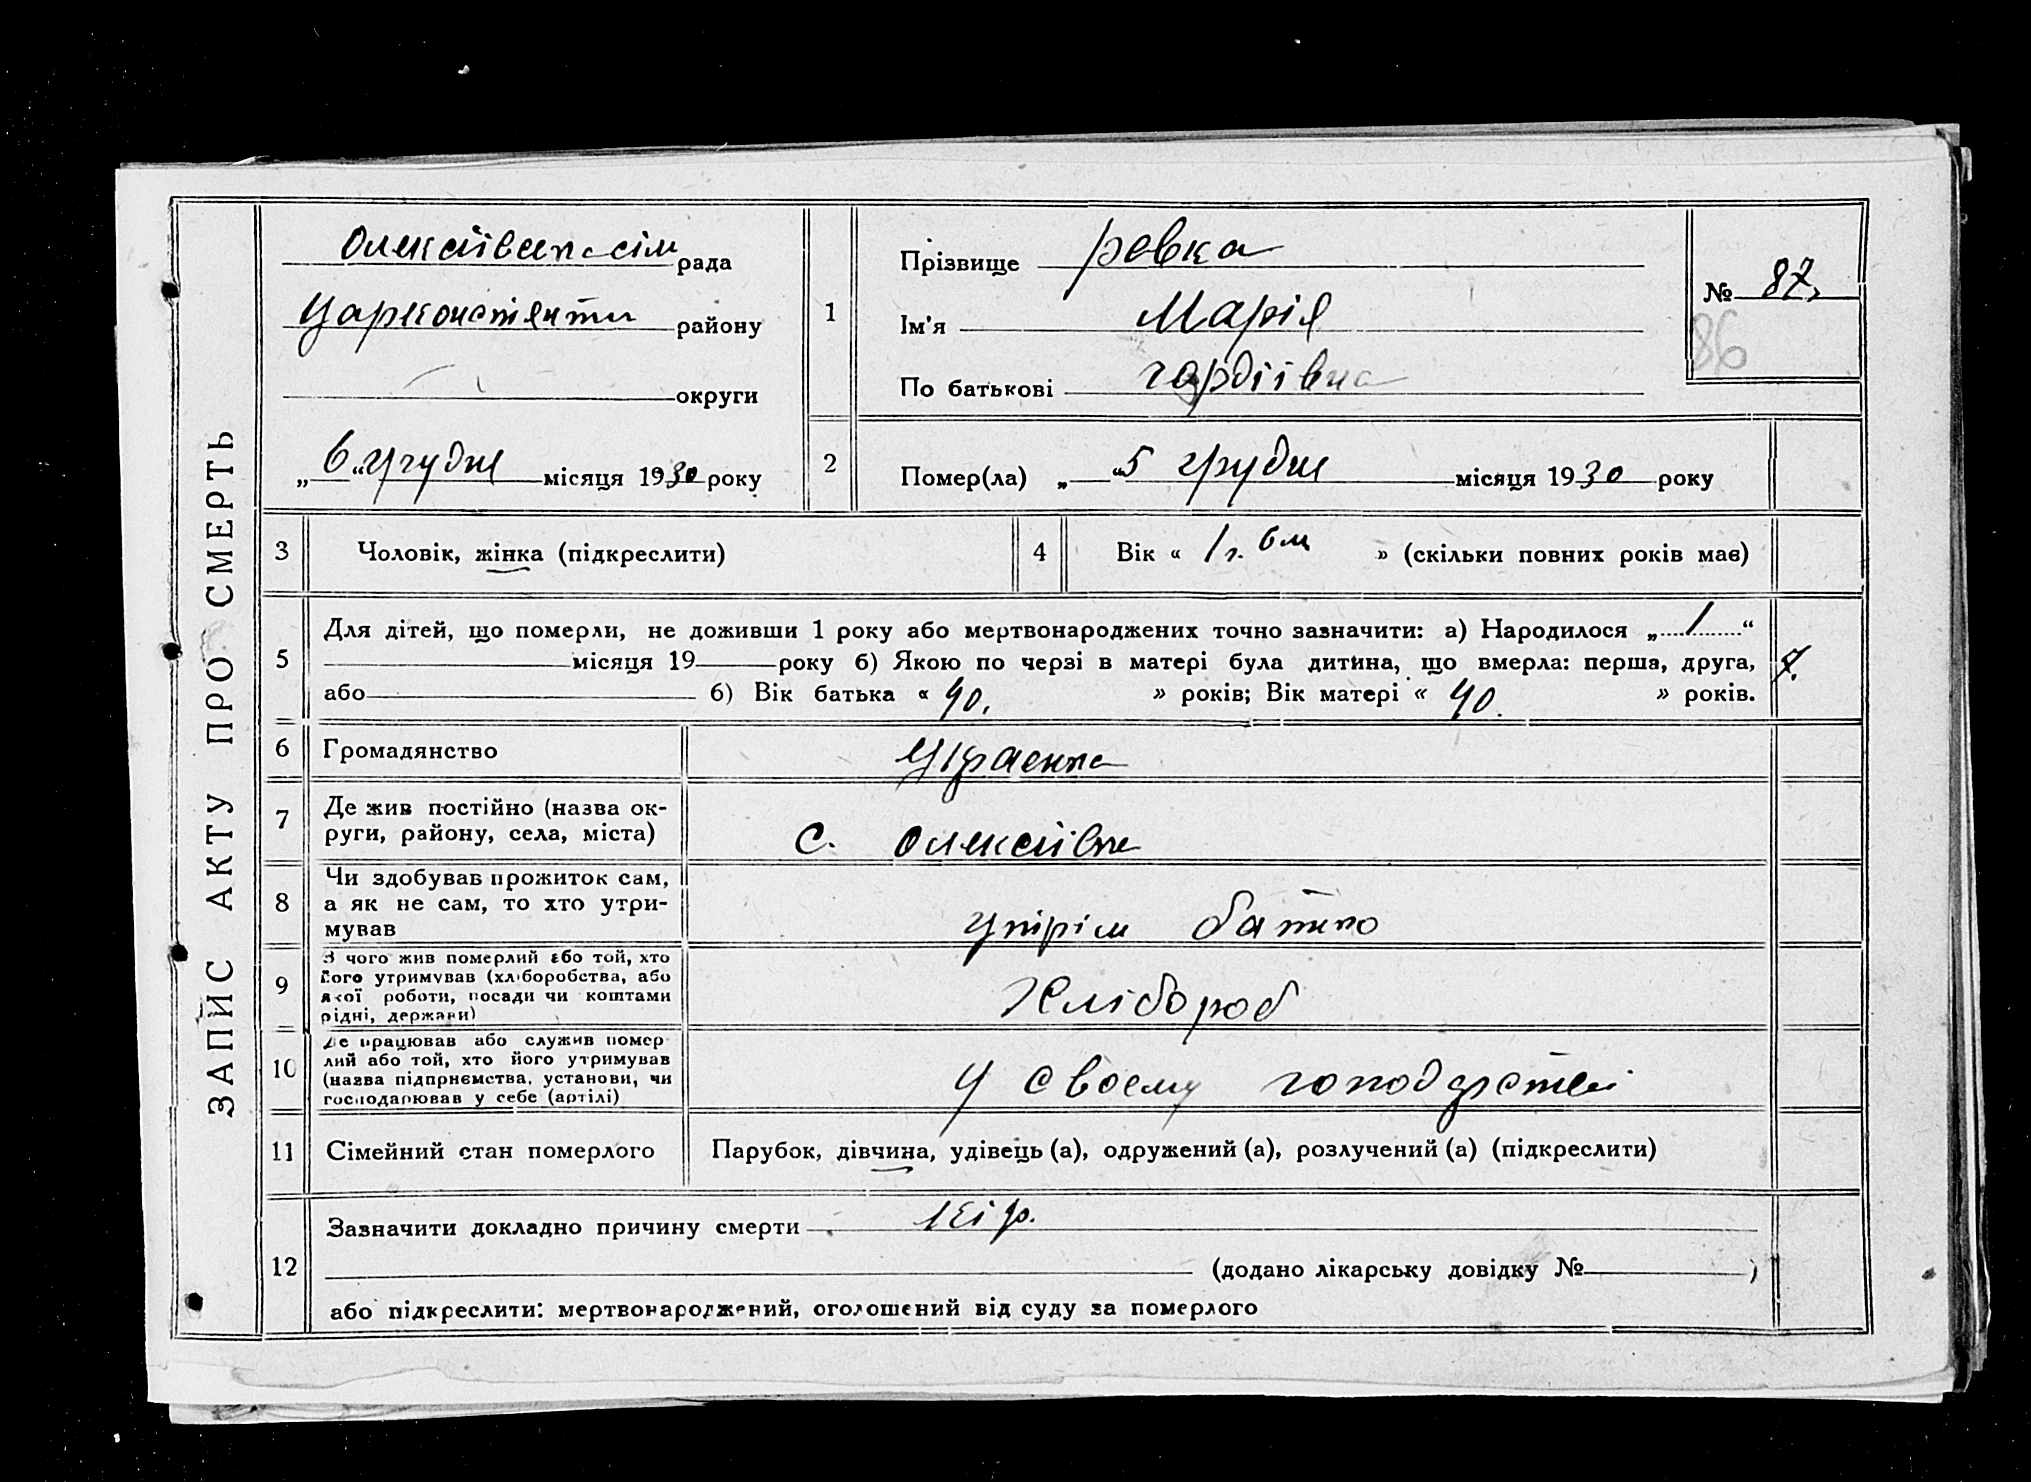 ЗАПИС АКТУ ПРО СМЕРТЬ
Олексіївск сіл рада
Царконстянти району
округи
„6“ грудня місяця 1930 року
1
Прізвище Ревка
Ім'я Марія
По батькові Гордіївна
№ 87,
86
2
Помер(ла) „5“ грудня місяця 1930 року
3 Чоловік, жінка (підкреслити)
4 Вік « 1 г. 6 м » (скільки повних років має)
5
Для дітей, що померли, не доживши 1 року або мертвонароджених точно зазначити: а) Народилося „ “
місяця 19 року б) Якою по черзі в матері була дитина, що вмерла: перша, друга,
або б) Вік батька « 40. » років; Вік матері « 40. » років.
7.
6 Громадянство Украенка
7 Де жив постійно (назва ок-
руги, району, села, міста) С. Олексіївка
8 Чи здобував прожиток сам,
а як не сам, то хто утри-
мував батько
9 З чого жив померлий або той, хто
його утримував (хліборобства, або
якої роботи, посади чи коштами
рідні, держави) Хлібороб
10 Де працював або служив помер-
лий або той, хто його утримував
(назва підприємства, установи, чи
господарював у себе (артілі) У своему
11 Сімейний стан померлого Парубок, дівчина, удівець (а), одружений (а), розлучений (а) (підкреслити)
12 Зазначити докладно причину смерти кір.
(додано лікарську довідку № )
або підкреслити: мертвонароджений, оголошений від суду за померлого